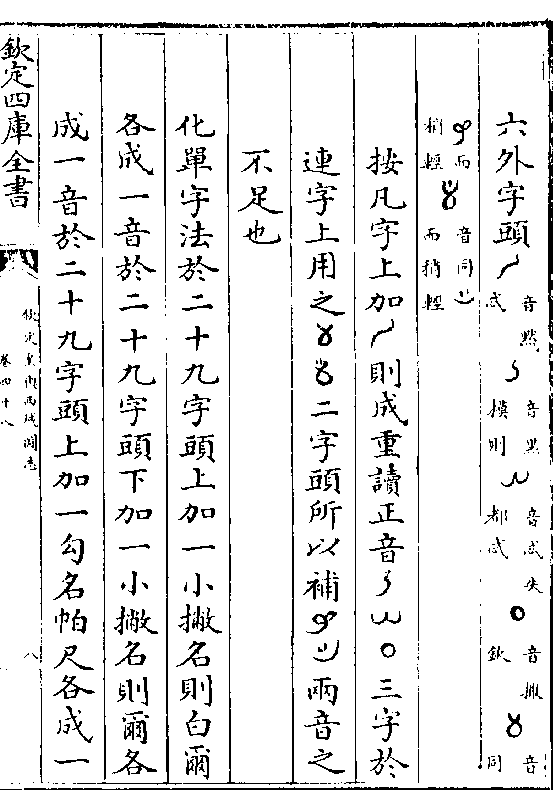 六外字頭 音黙忒 音黑模則 音忒失都忒 音撒欽 音同
而稍輕 音同 而稍輕
按凡字上加 則成重讀正音 三字於
連字上用之 二字頭所以補 兩音之
不足也
化單字法於二十九字頭上加一小撇名則白爾
各成一音於二十九字頭下加一小撇名則爾各
成一音於二十九字頭上加一勾名帕尺各成一
欽定四庫全書
欽定皇輿西域圖志
卷四十八
八